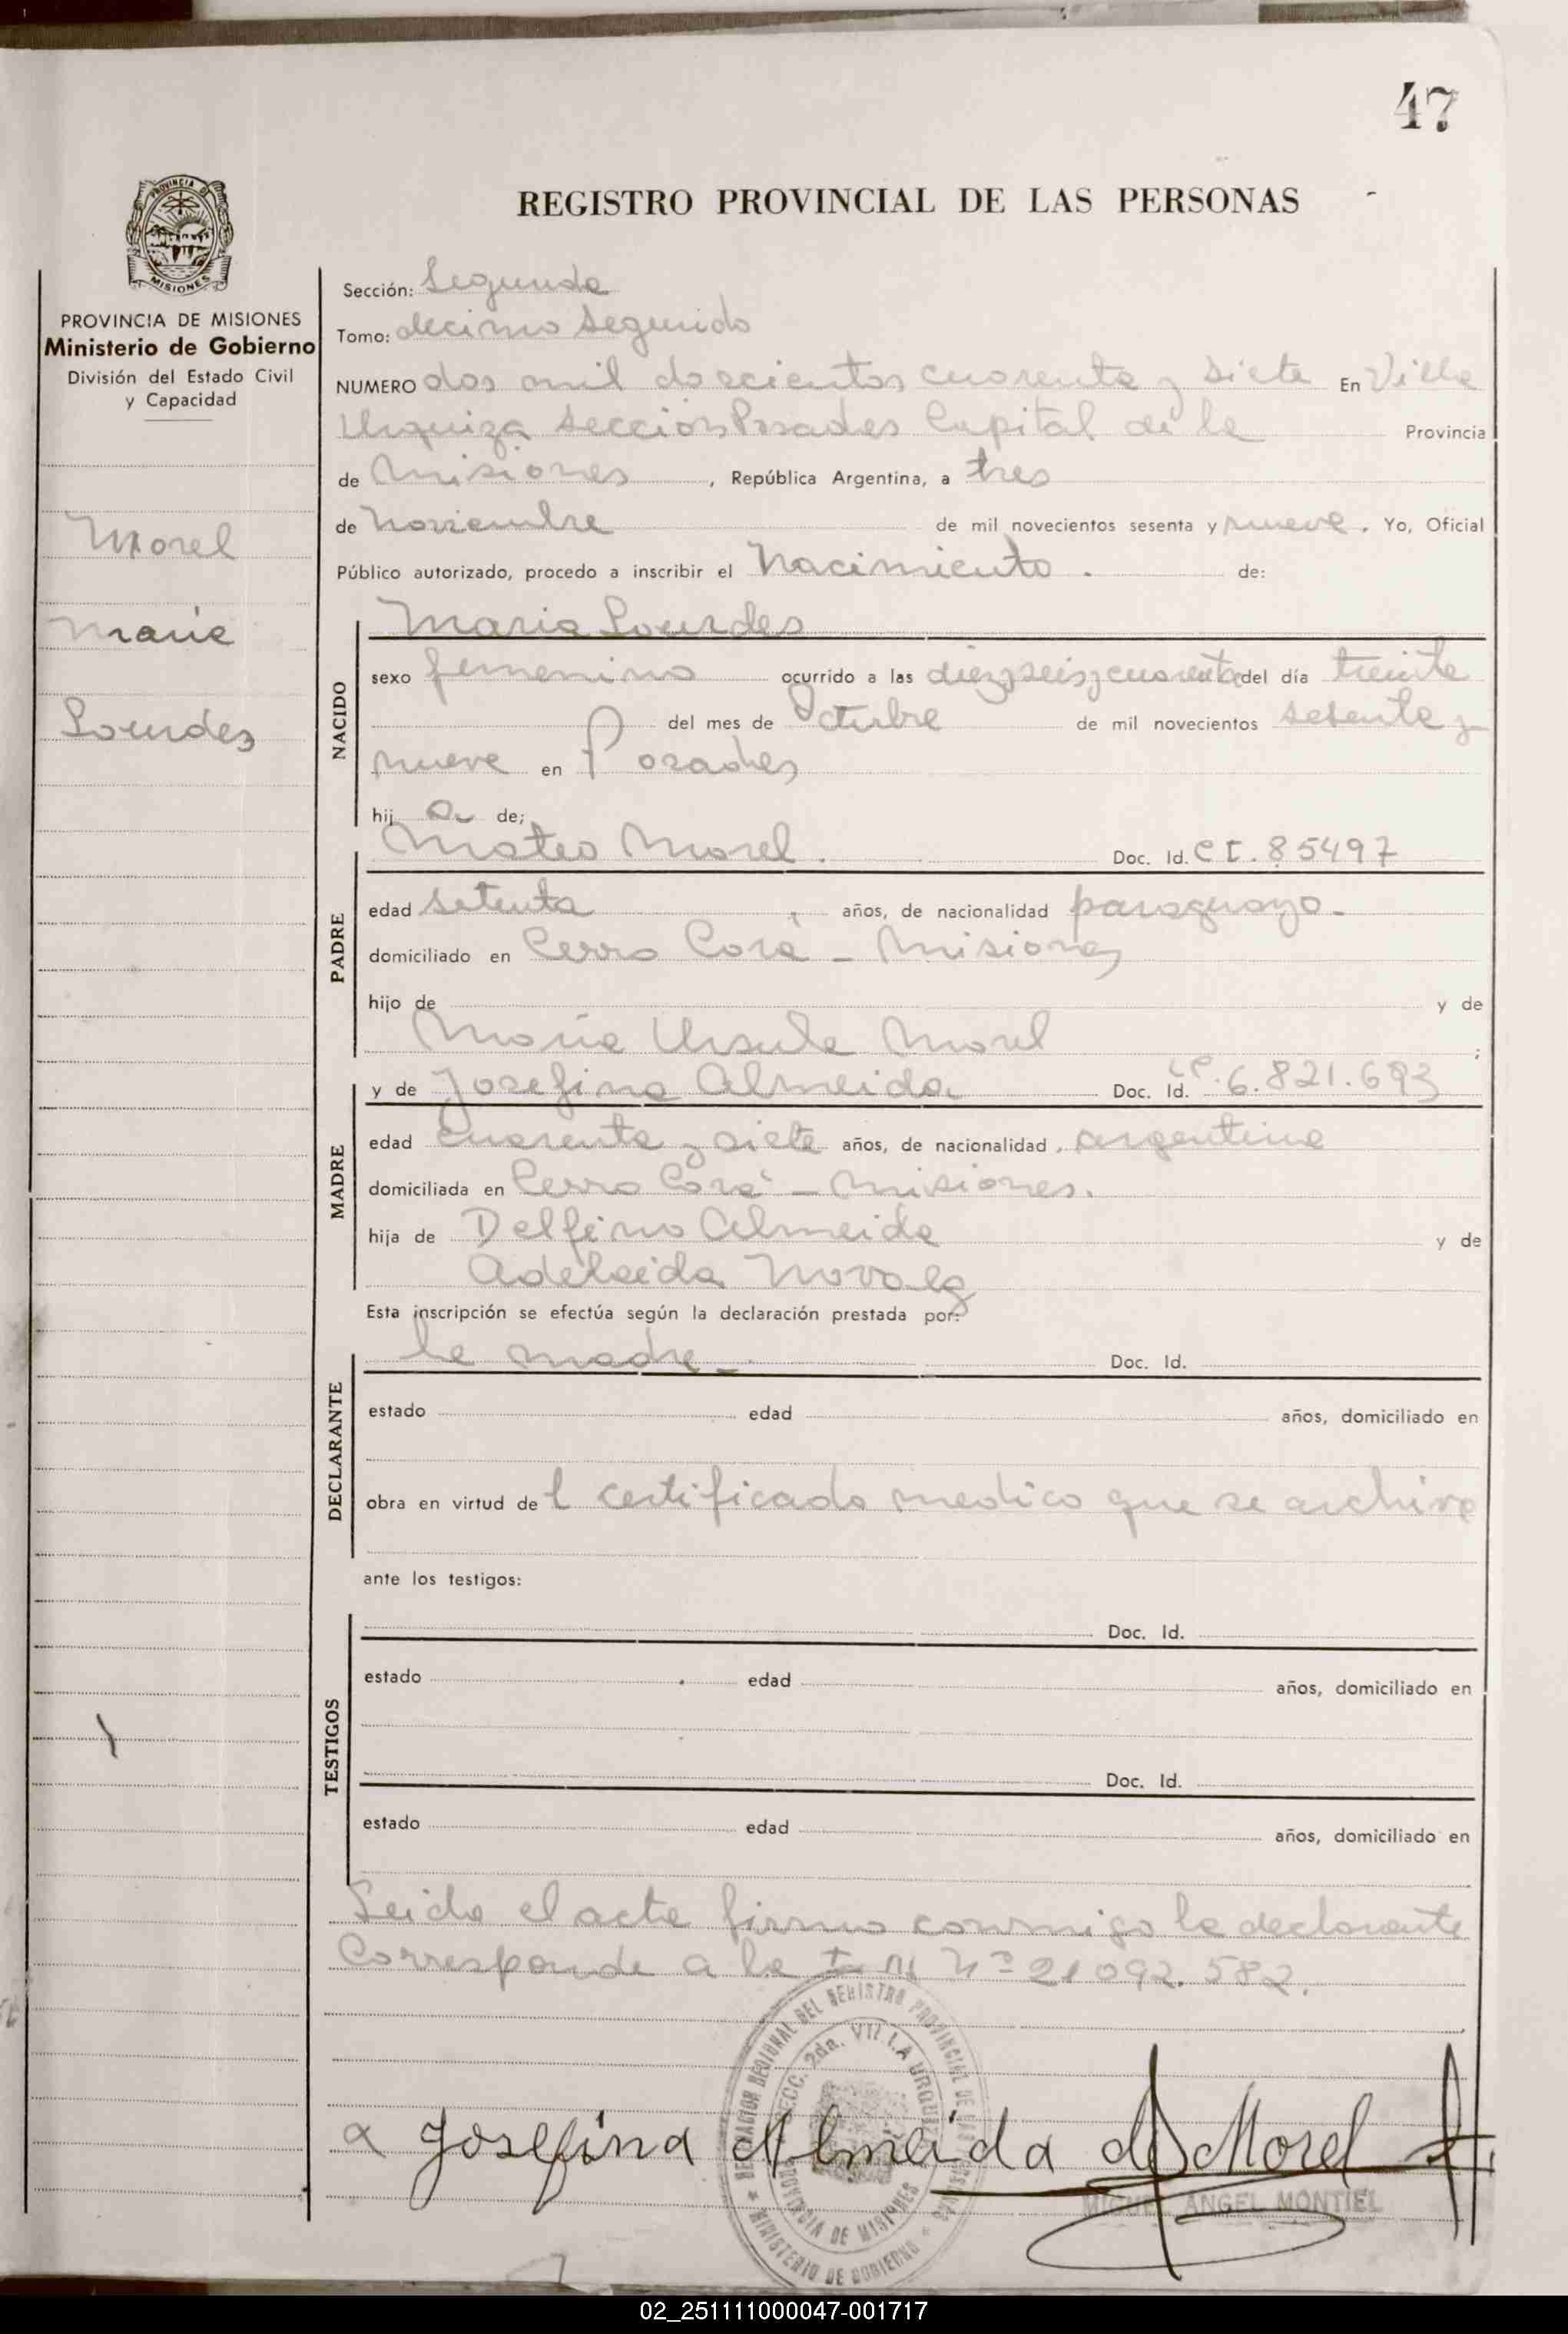 47
REGISTRO PROVINCIAL DE LAS PERSONAS
PROVINCIA DE MISIONES
Ministerio de Gobierno
División del Estado Civil
y Capacidad
Morel
Maria
Lourdes
Sección: Segunda
Tomo: decimo segundo
NUMERO dos mil doscientos cuarenta y siete En Villa
Urquiza Sección Posadas Capital de la Provincia
de Misiones, República Argentina, a tres
de Noviembre de mil novecientos sesenta y nueve. Yo, Oficial
Público autorizado, procedo a inscribir el Nacimiento. de:
NACIDO
Maria Lourdes
sexo femenino ocurrido a las diez y seis y cuarenta del día treinta
del mes de Octubre de mil novecientos sesenta y
nueve en Posadas
hij a de;
PADRE
Mateo Morel. Doc. Id. C I. 85497
edad setenta años, de nacionalidad paraguayo.
domiciliado en Cerro Corá - Misiones
hijo de y de
Maria Ursula Morel ;
MADRE
y de Josefina Almeida Doc. Id. 6.821.693
edad cuarenta y siete años, de nacionalidad argentina
domiciliada en Cerro Corá - Misiones.
hija de Delfino Almeida y de
Adelaida
Esta inscripción se efectúa según la declaración prestada por:
DECLARANTE
la madre - Doc. Id.
estado edad años, domiciliado en
obra en virtud de l certificado medico que se archiva
ante los testigos:
TESTIGOS
Doc. Id.
estado edad años, domiciliado en
Doc. Id.
estado edad años, domiciliado en
Leida el acta firma conmigo la declarante
Corresponde a la Nº 21092.582.
DELEGACION REGIONAL DEL REGISTRO PROVINCIAL DE LAS PERSONAS
SECC. 2da. VILLA URQUIZA
PROVINCIA DE MISIONES
MINISTERIO DE GOBIERNO
Josefina Almeida de Morel
MIGUEL ANGEL MONTIEL
02_251111000047-001717